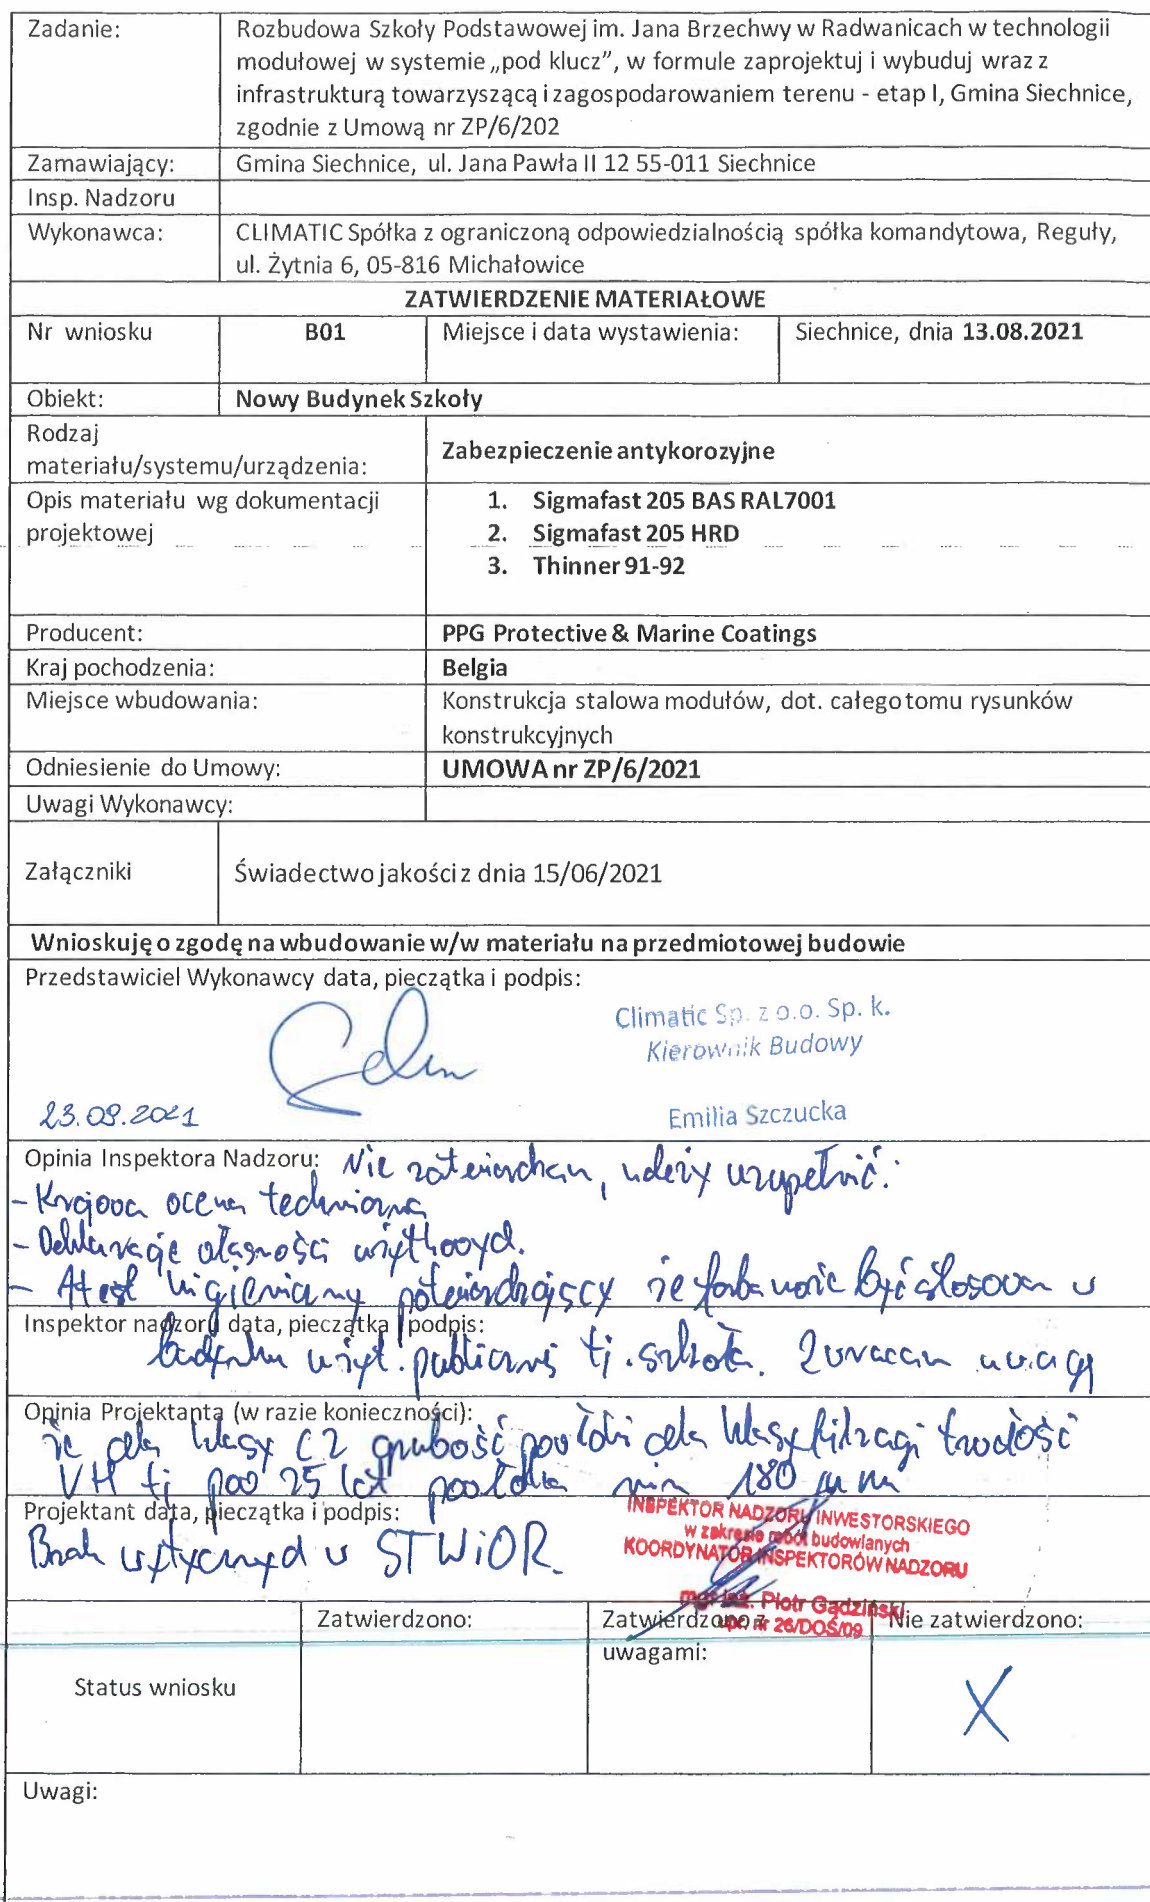 Zadanie:
Rozbudowa Szkoły Podstawowej im. Jana Brzechwy w Radwanicach w technologii
modułowej w systemie „pod klucz”, w formule zaprojektuj i wybuduj wraz z
infrastrukturą towarzyszącą i zagospodarowaniem terenu - etap I, Gmina Siechnice,
zgodnie z Umową nr ZP/6/202
Zamawiający: Gmina Siechnice, ul. Jana Pawła II 12 55-011 Siechnice
Insp. Nadzoru
Wykonawca: CLIMATIC Spółka z ograniczoną odpowiedzialnością spółka komandytowa, Reguły,
ul. Żytnia 6, 05-816 Michałowice
ZATWIERDZENIE MATERIAŁOWE
Nr wniosku B01 Miejsce i data wystawienia: Siechnice, dnia 13.08.2021
Obiekt: Nowy Budynek Szkoły
Rodzaj
materiału/systemu/urządzenia: Zabezpieczenie antykorozyjne
Opis materiału wg dokumentacji
projektowej
1. Sigmafast 205 BAS RAL7001
2. Sigmafast 205 HRD
3. Thinner 91-92
Producent: PPG Protective & Marine Coatings
Kraj pochodzenia: Belgia
Miejsce wbudowania: Konstrukcja stalowa modułów, dot. całego tomu rysunków
konstrukcyjnych
Odniesienie do Umowy: UMOWA nr ZP/6/2021
Uwagi Wykonawcy:
Załączniki Świadectwo jakości z dnia 15/06/2021
Wnioskuję o zgodę na wbudowanie w/w materiału na przedmiotowej budowie
Przedstawiciel Wykonawcy data, pieczątka i podpis:
Climatic Sp. z o.o. Sp. k.
Kierownik Budowy
23.09.2021
Emilia Szczucka
Opinia Inspektora Nadzoru: Nie zatwierdzam, należy uzupełnić:
- Krajowa ocena techniczna
- Deklaracje własności użytkowych.
- Atest higieniczny potwierdzający że farba może być stosowana w
Inspektor nadzoru data, pieczątka i podpis:
budynku użyt. publicznej tj. szkoła. Zwracam uwagę
Opinia Projektanta (w razie konieczności):
że dla klasy C2 grubość powłoki dla klasyfikacji trwałość
VH tj pow 25 lat powłoka min 180 µm
Projektant data, pieczątka i podpis:
Brak wytycznych w STWiOR.
INSPEKTOR NADZORU INWESTORSKIEGO
w zakresie robót budowlanych
KOORDYNATOR INSPEKTORÓW NADZORU
mgr inż. Piotr Gądziński
upr. nr 26/DOŚ/09
Status wniosku
Zatwierdzono:
Zatwierdzono z
uwagami:
Nie zatwierdzono:
X
Uwagi: